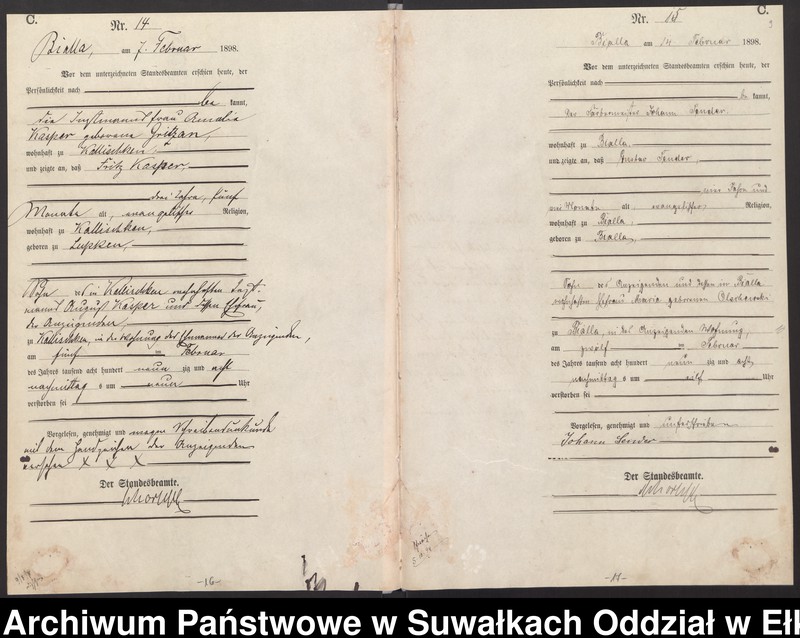 C.
Nr. 14
Bialla, am 7. Februar 1898.
Vor dem unterzeichneten Standesbeamten erschien heute, der
Persönlichkeit nach
be kannt,
die Instmannsfrau Amalie
Kasper geborene Gritzan,
wohnhaft zu Kallischken,
und zeigte an, daß Fritz Kasper,
drei Jahre, fünf
Monate alt, evangelischer Religion,
wohnhaft zu Kallischken,
geboren zu Lupken,
Sohn des in Kallischken wohnhaften Inst-
manns August Kasper und dessen Ehefrau,
der Anzeigenden,
zu Kallischken, in der Wohnung des Ehemannes der Anzeigenden,
am fünf ten Februar
des Jahres tausend acht hundert neun zig und acht
nachmittag s um neun Uhr
verstorben sei
Vorgelesen, genehmigt und wegen Schreibensunkunde
mit dem Handzeichen der Anzeigenden
versehen X X X
Der Standesbeamte.
-16-
C.
Nr. 15
Bialla am 14. Februar 1898.
Vor dem unterzeichneten Standesbeamten erschien heute, der
Persönlichkeit nach
be kannt,
der Johann
wohnhaft zu Bialla
und zeigte an, daß Gustav
Jahre und
Monate alt, evangelischer Religion,
wohnhaft zu Bialla,
geboren zu Bialla,
Sohn des Anzeigenden und dessen in Bialla
wohnhaften Ehefrau Marie geborenen
zu Bialla, in des Anzeigenden Wohnung,
am zwölf ten Februar
des Jahres tausend acht hundert neun zig und acht
nachmittag s um elf Uhr
verstorben sei
Vorgelesen, genehmigt und unterschrieben
Johann
Der Standesbeamte.
Archiwum Państwowe w Suwałkach Oddział w Eł